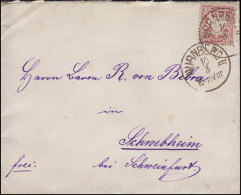 NÜRNBERG II
Herrn Baron R. von Bibra
in
Schwebheim
frei. bei Schweinfurt.